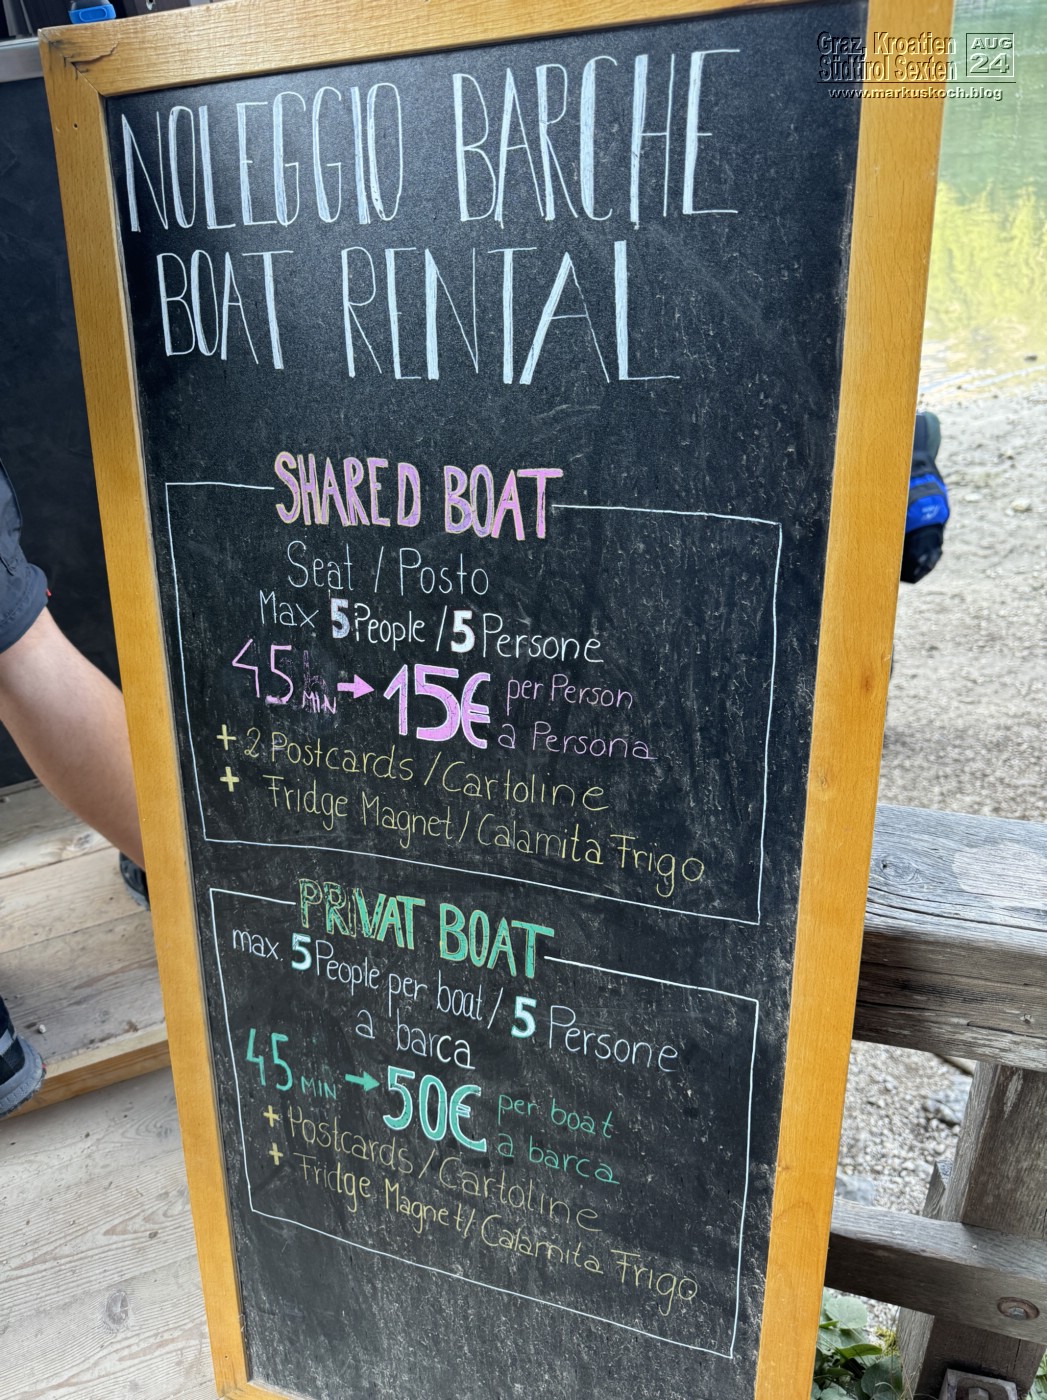 Graz, Kroatien
Südtirol Sexten
AUG
24
www.markuskoch.blog
NOLEGGIO BARCHE
BOAT RENTAL
SHARED BOAT
Seat / Posto
Max. 5 People / 5 Persone
45 MIN → 15€ per Person
a Persona
+ 2 Postcards / Cartoline
+ Fridge Magnet / Calamita Frigo
PRIVAT BOAT
max. 5 People per boat / 5 Persone
a barca
45 MIN → 50€ per boat
a barca
+ Postcards / Cartoline
+ Fridge Magnet / Calamita Frigo